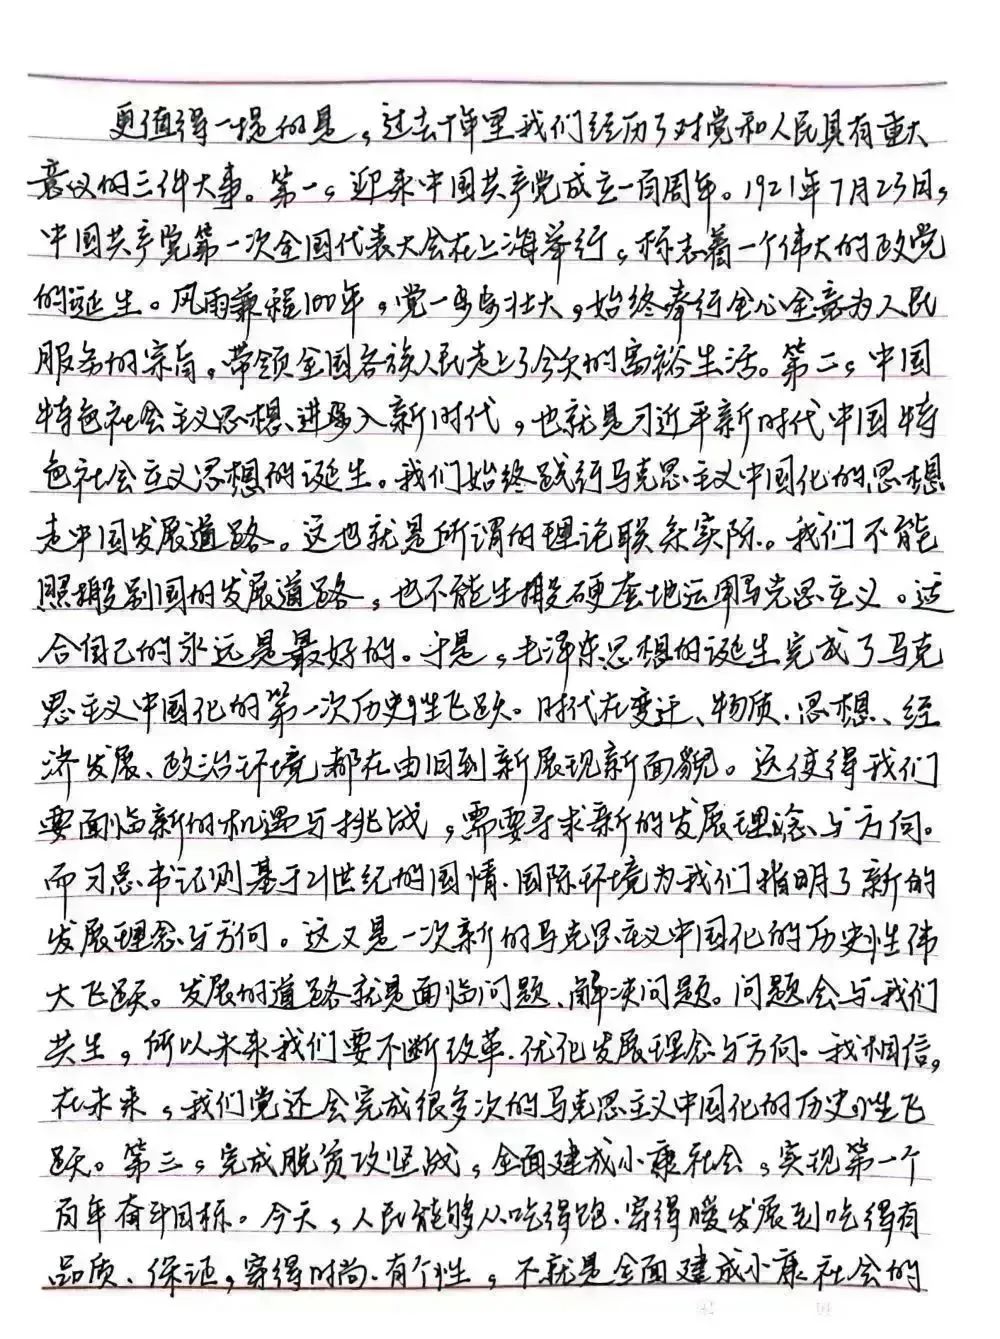 更值得一提的是，过去十年里我们经历了对党和人民具有重大
意义的三件大事。第一，迎来中国共产党成立一百周年。1921年7月23日，
中国共产党第一次全国代表大会在上海举行，标志着一个伟大的政党
的诞生。风雨兼程100年，党一步步壮大，始终奉行全心全意为人民
服务的宗旨，带领全国各族人民走上了今次的富裕生活。第二，中国
特色社会主义思想进入新时代，也就是习近平新时代中国特
色社会主义思想的诞生。我们始终践行马克思主义中国化的思想
走中国发展道路。这也就是所谓的理论联系实际。我们不能
照搬别国的发展道路，也不能生搬硬套地运用马克思主义。适
合自己的永远是最好的。于是，毛泽东思想的诞生完成了马克
思主义中国化的第一次历史性飞跃。时代在变迁、物质、思想、经
济发展、政治环境都在由旧到新展现新面貌。这使得我们
要面临新的机遇与挑战，需要寻求新的发展理念与方向。
而习总书记则基于21世纪的国情、国际环境为我们指明了新的
发展理念与方向。这又是一次新的马克思主义中国化的历史性伟
大飞跃。发展的道路就是面临问题、解决问题。问题会与我们
共生，所以未来我们要不断改革、优化发展理念与方向。我相信，
在未来，我们党还会完成很多次的马克思主义中国化的历史性飞
跃。第三，完成脱贫攻坚战，全面建成小康社会，实现第一个
百年奋斗目标。今天，人民能够从吃得饱、穿得暖发展到吃得有
品质、保证，穿得时尚、有个性，不就是全面建成小康社会的